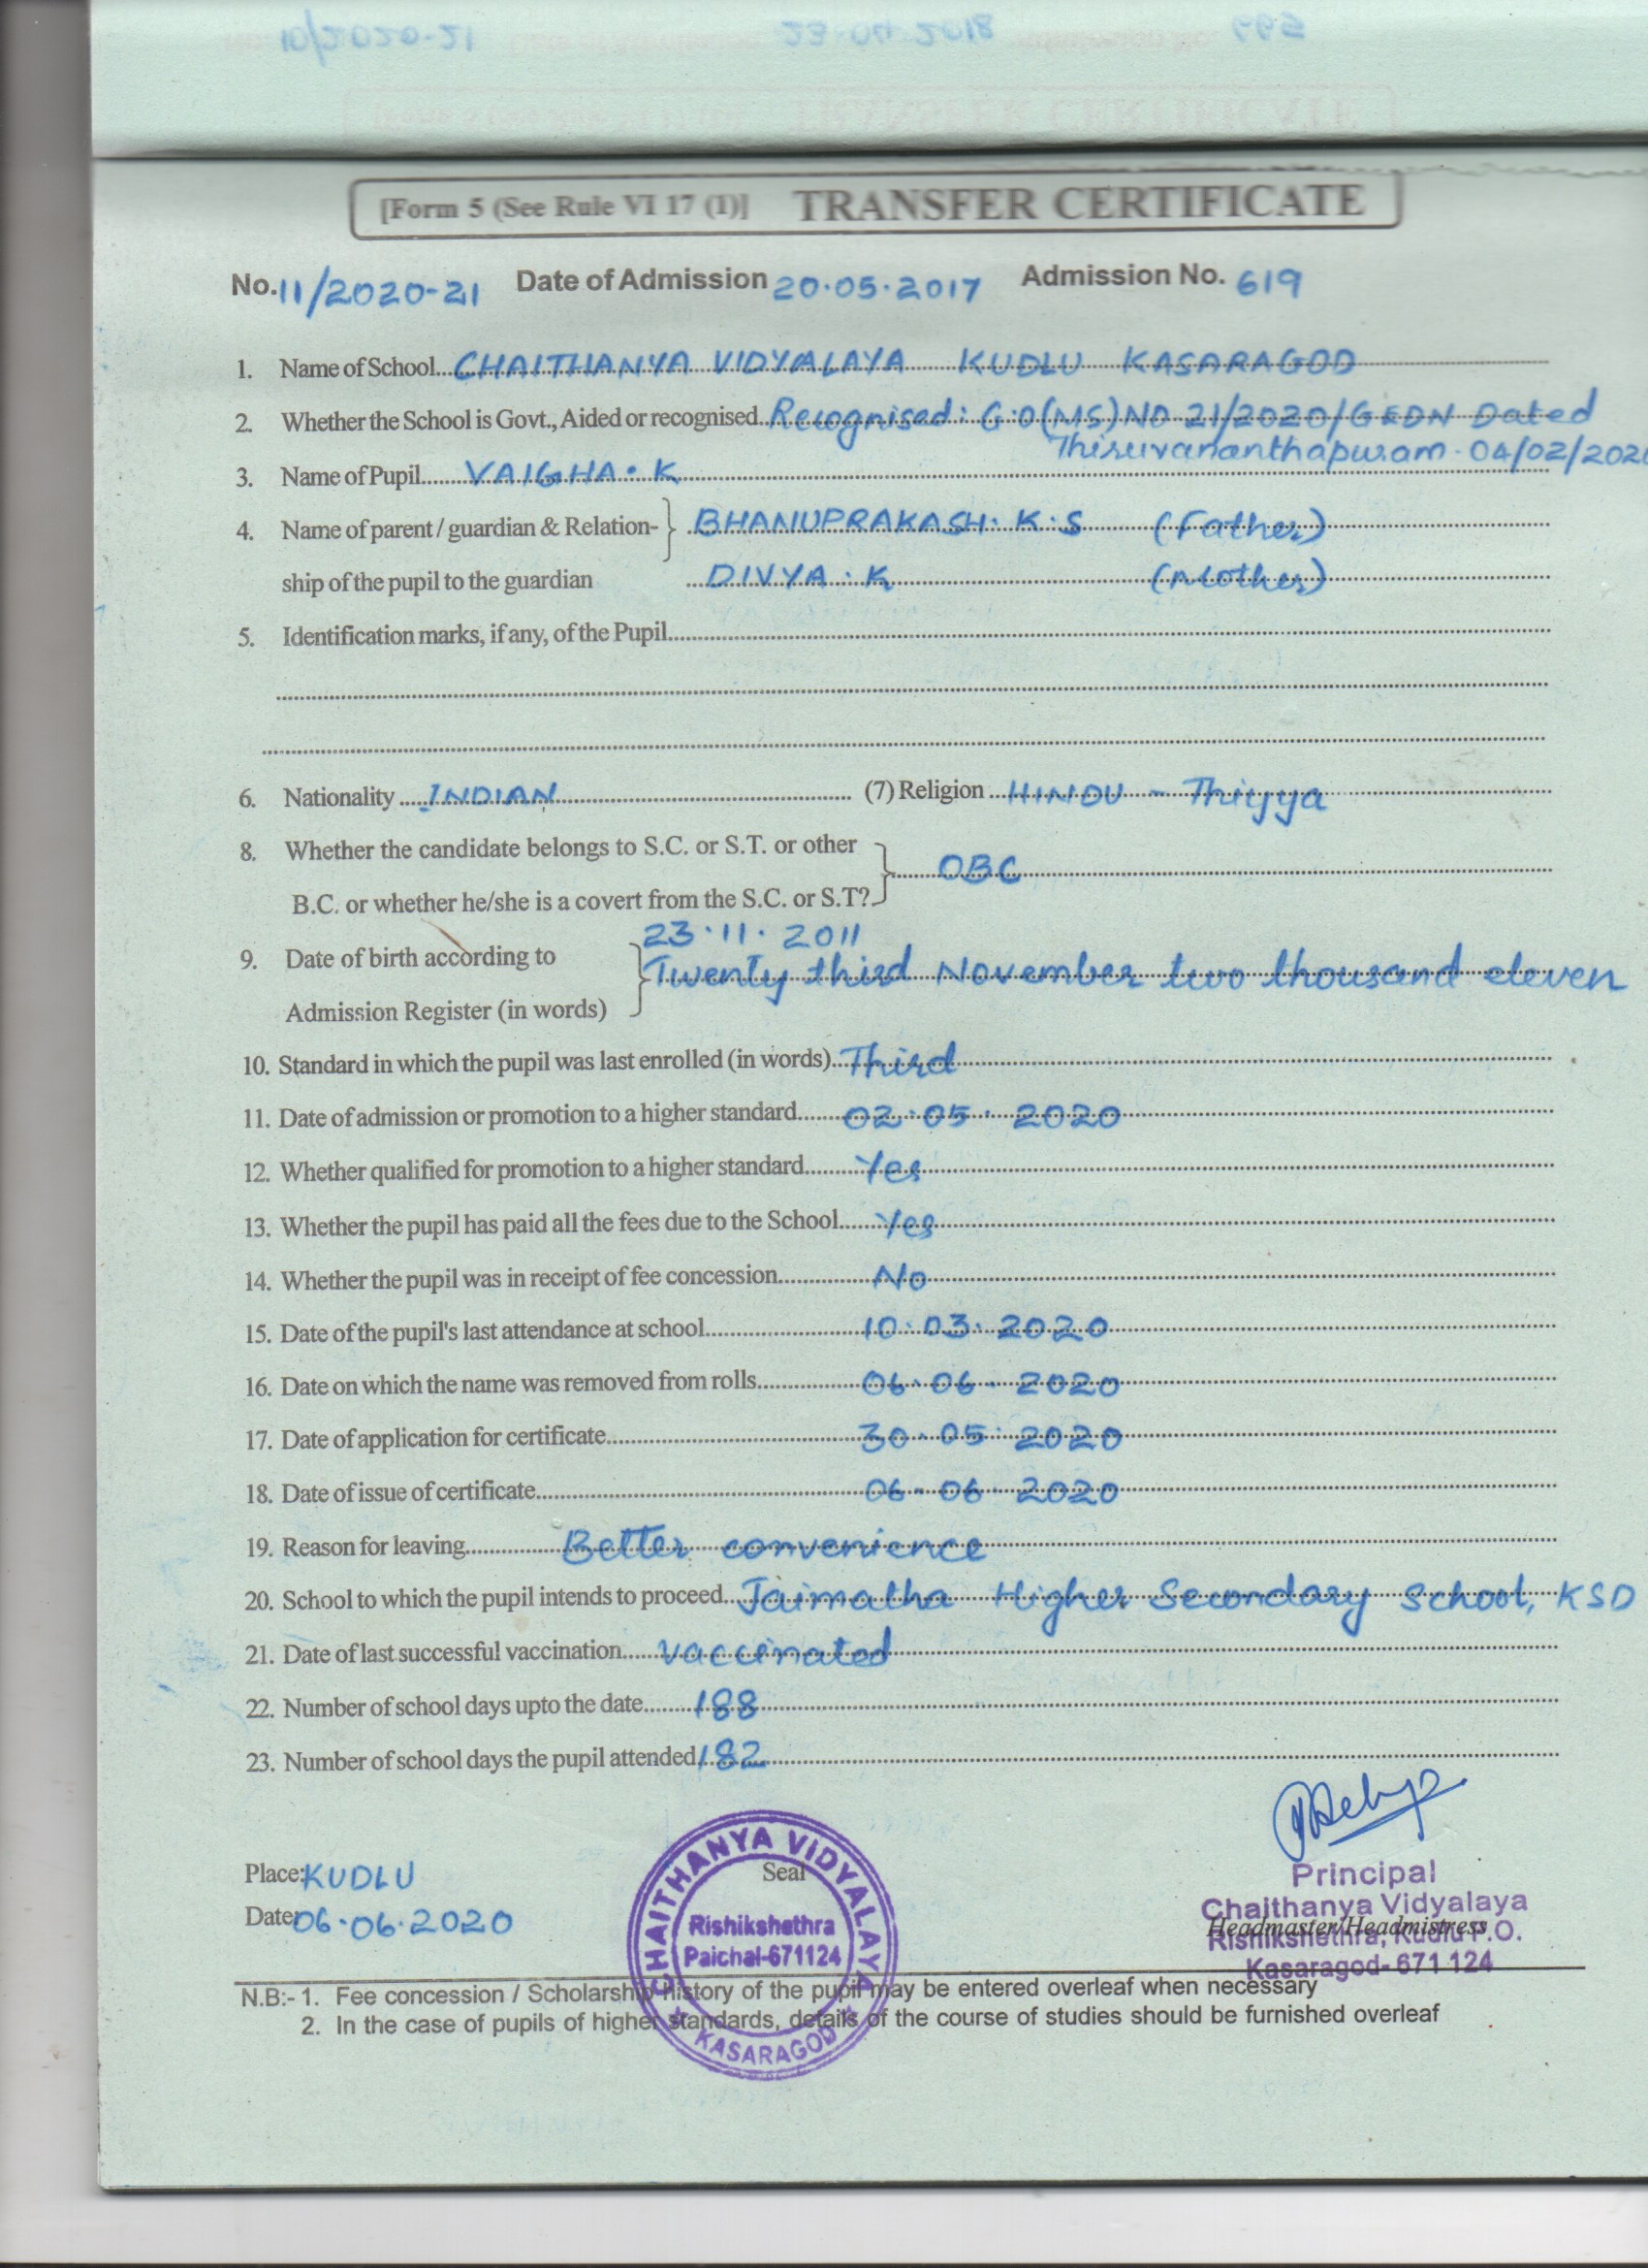 [Form 5 (See Rule VI 17 (1)] TRANSFER CERTIFICATE
No. 11/2020-21 Date of Admission 20.05.2017 Admission No. 619
1. Name of School CHAITHANYA VIDYALAYA KUDLU KASARAGOD
2. Whether the School is Govt., Aided or recognised Recognised: G.O(MS)NO 21/2020/GEDN Dated
Thiruvananthapuram. 04/02/2020
3. Name of Pupil VAIGHA. K
4. Name of parent / guardian & Relation- BHANUPRAKASH. K.S (Father)
ship of the pupil to the guardian DIVYA. K (Mother)
5. Identification marks, if any, of the Pupil
6. Nationality INDIAN (7) Religion HINDU - Thiyya
8. Whether the candidate belongs to S.C. or S.T. or other
OBC
B.C. or whether he/she is a covert from the S.C. or S.T?
23.11.2011
9. Date of birth according to Twenty third November two thousand eleven
Admission Register (in words)
10. Standard in which the pupil was last enrolled (in words) Third
11. Date of admission or promotion to a higher standard 02.05.2020
12. Whether qualified for promotion to a higher standard Yes
13. Whether the pupil has paid all the fees due to the School Yes
14. Whether the pupil was in receipt of fee concession No
15. Date of the pupil's last attendance at school 10.03.2020
16. Date on which the name was removed from rolls 06.06.2020
17. Date of application for certificate 30.05.2020
18. Date of issue of certificate 06.06.2020
19. Reason for leaving Better convenience
20. School to which the pupil intends to proceed Jaimatha Higher Secondary School, KSD
21. Date of last successful vaccination vaccinated
22. Number of school days upto the date 188
23. Number of school days the pupil attended 182
Place: KUDLU
Date: 06.06.2020
Seal
CHAITHANYA VIDYALAYA
Rishikshethra
Paichal-671124
KASARAGOD
Principal
Chaithanya Vidyalaya
Headmaster/Headmistress
Rishikshethra, Kudlu P.O.
Kasaragod- 671 124
N.B:- 1. Fee concession / Scholarship History of the pupil may be entered overleaf when necessary
2. In the case of pupils of higher standards, details of the course of studies should be furnished overleaf